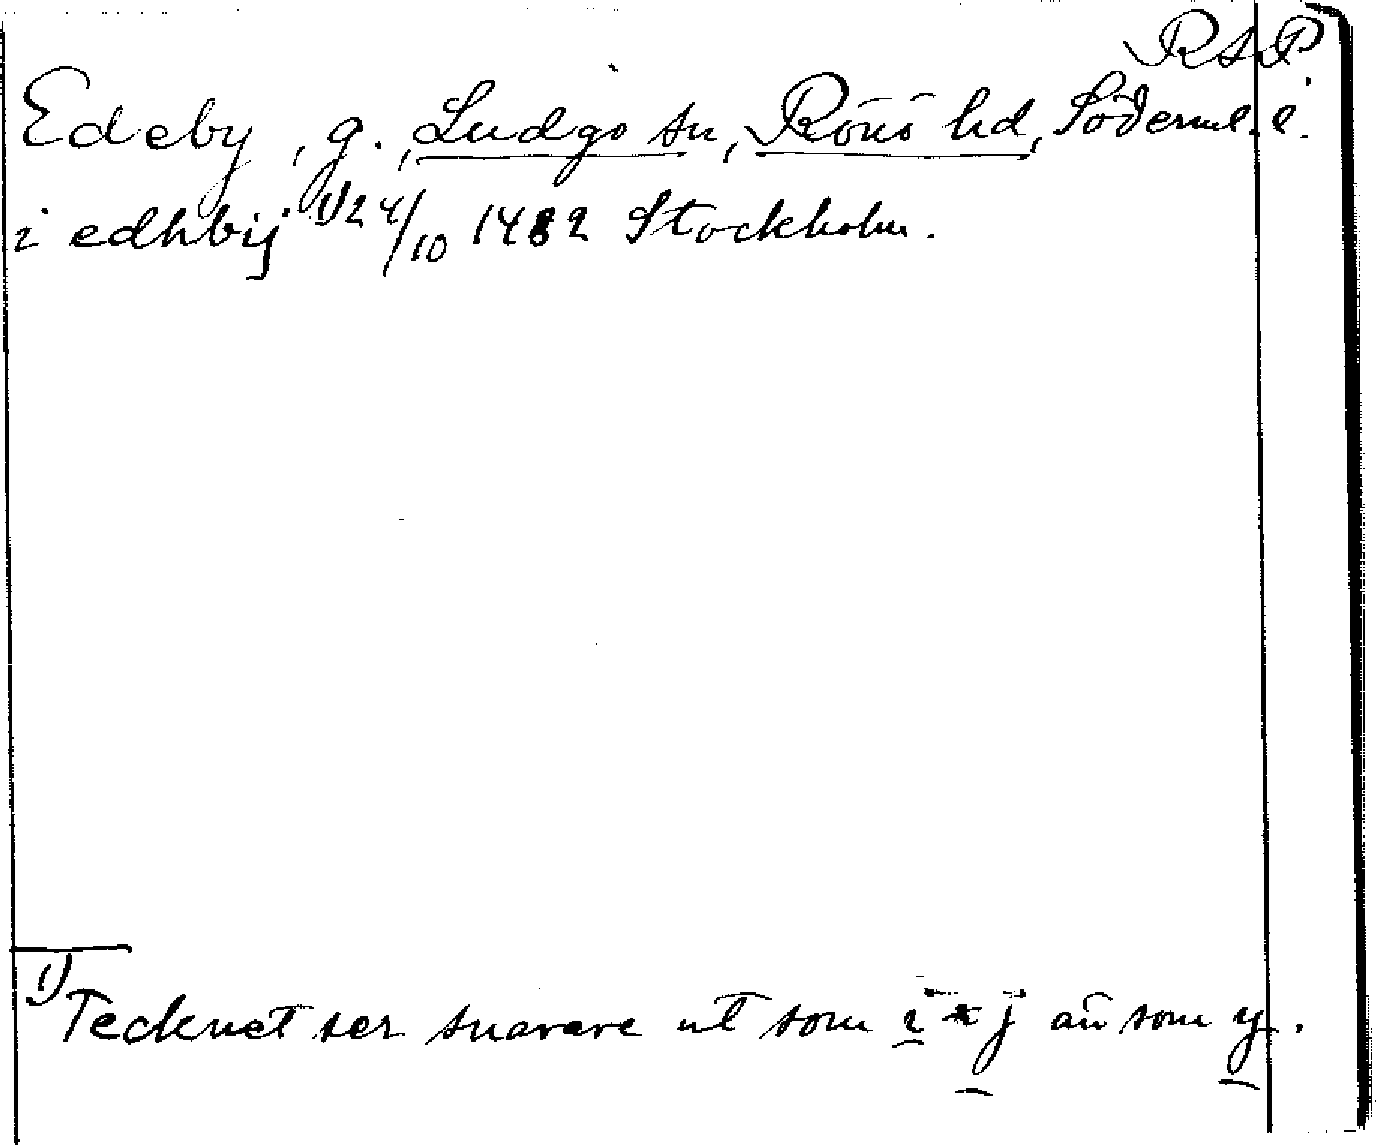 RAP
Edeby, g., Ludgo sn, Rönö hd, Söderml. l.
i edhbij 1) 24/10 1482 Stockholm.
1) Tecknet ser snarare ut som i + j än som y.